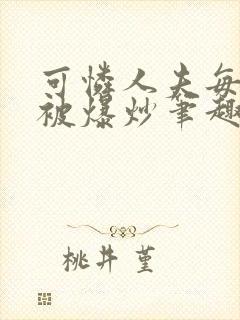 可憐人夫每
被爆炒筆趣
桃井 堇